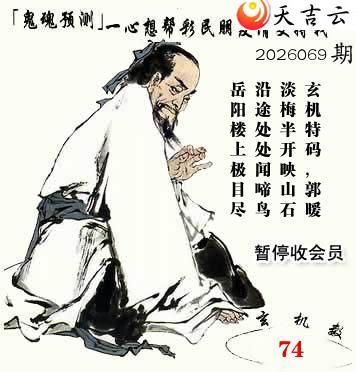 天吉云
「鬼魂预测」一心想帮彩民朋友
2026069期
玄机特码，郭暖
淡梅半开映山石
沿途处处闻啼鸟
岳阳楼上极目尽
暂停收会员
玄机
74